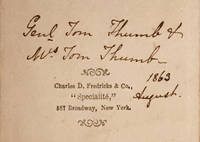 Genl Tom Thumb &
Mrs Tom Thumb
Charles D. Fredricks & Co.,
"Specialité,"
587 Broadway, New York.
1863
August.